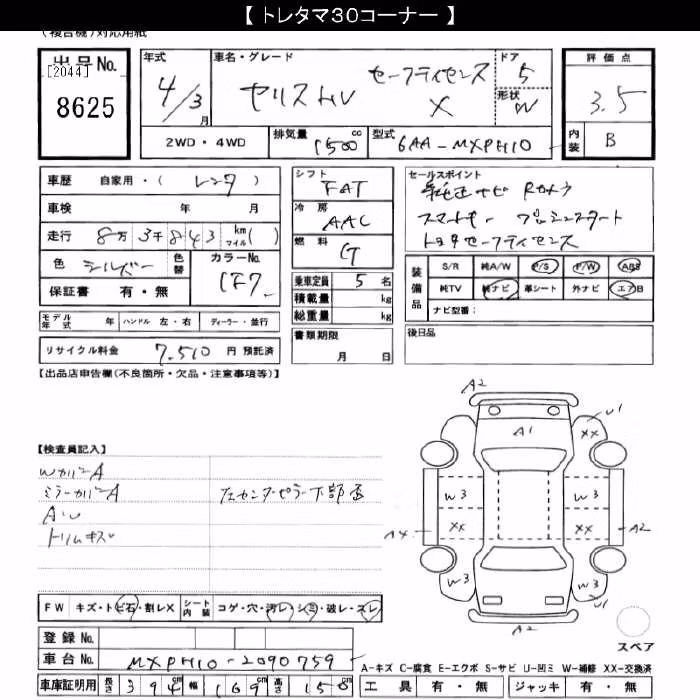 【 トレタマ30コーナー 】
(複合機)対応用紙
出品No.
[2044]
8625
年式 4/3月
車名・グレード セリスHV セーフティセンス X
ドア 5
形状 W
評価点 3.5
内装 B
2WD・4WD 排気量 1500 cc 型式 6AA-MXPH10
車歴 自家用・( レンタ )
車検 年 月
走行 8万3千843 km マイル( )
色 シルバー 色替 カラーNo. 1F7
保証書 有・無
シフト FAT
冷房 AAC
燃料 G
乗車定員 5 名
積載量 kg
総重量 kg
セールスポイント
純正ナビ Rカメラ
スマートキー プッシュスタート
トヨタセーフティセンス
装備品 S/R 純A/W P/S P/W ABS
純TV 純ナビ 革シート 外ナビ エアB
ナビ型番:
モデル年式 年 ハンドル 左・右 ディーラー・並行
リサイクル料金 7,510 円 預託済
書類期限 月 日
後日品
【出品店申告欄(不良箇所・欠品・注意事項等)】
A2
U1
A1
XX XX
【検査員記入】
WカバーA
ミラーカバーA 左センターピラー下部歪
AW
トリムキズ
W3 W3
XX XX
A4 A2
W3 W3
U1
A2
スペア
FW キズ・トビ石・割レX シート内装 コゲ・穴・汚レ・シミ・破レ・スレ
登録No.
車台No. MXPH10-2090759
A-キズ C-腐食 E-エクボ S-サビ U-凹ミ W-補修 XX-交換済
車庫証明用 長さ 394 cm 幅 169 cm 高さ 150 cm
工具 有・無 ジャッキ 有・無